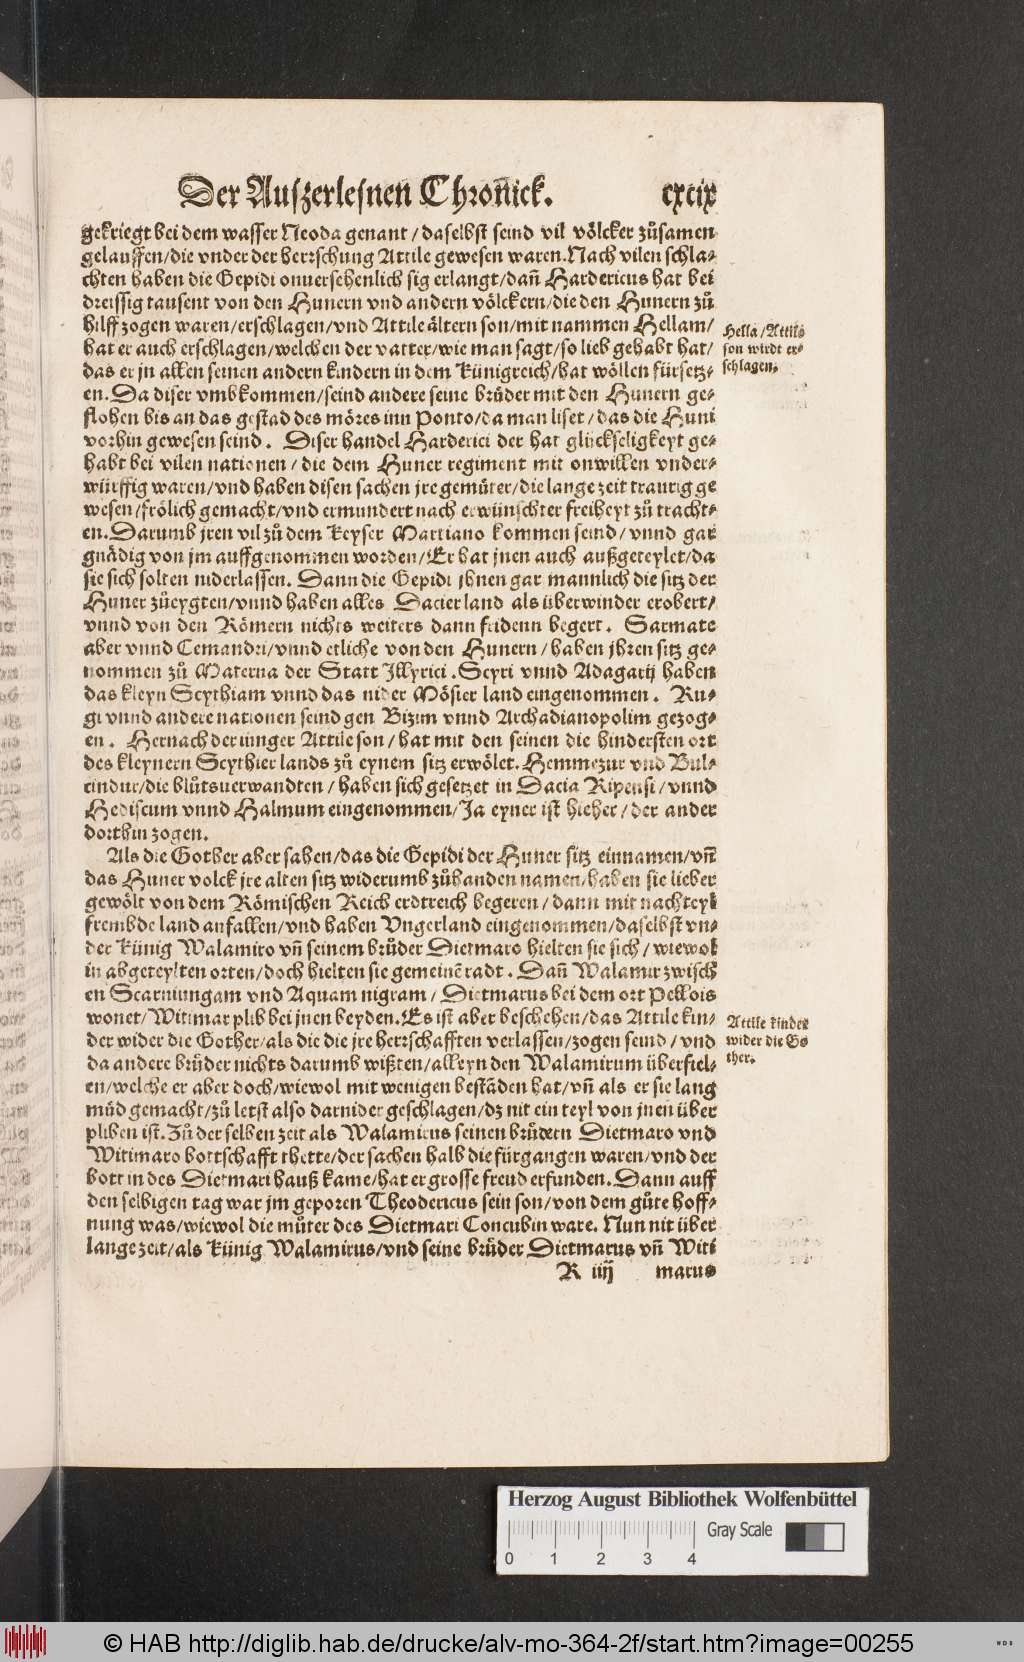 Der Auſzerleſnen Chronick. cxcix
gekriegt bei dem waſſer Neoda genant / daſelbſt ſeind vil völcker zůſamen
gelauffen / die vnder der herrſchung Attile geweſen waren. Nach vilen ſchla-
chten haben die Gepidi onuerſehenlich ſig erlangt / dañ Hardericus hat bei
dreiſſig tauſent von den Hunern vnd andern völckern / die den Hunern zů
hilff zogen waren / erſchlagen / vnd Attile åltern ſon / mit nammen Hellam /
hat er auch erſchlagen / welchen der vatter / wie man ſagt / ſo lieb gehabt hat /
das er jn allen ſeinen andern kindern in dem künigreich / hat wöllen fürſetz-
en. Da diſer vmbkommen / ſeind andere ſeine brůder mit den Hunern ge-
flohen bis an das geſtad des möres inn Ponto / da man liſet / das die Huni
vorhin geweſen ſeind. Diſer handel Harderici der hat glückſeligkeyt ge-
habt bei vilen nationen / die dem Huner regiment mit onwillen vnder-
würffig waren / vnd haben diſen ſachen jre gemůter / die lange zeit traurig ge
weſen / frölich gemacht / vnd ermundert nach erwünſchter freiheyt zů tracht-
en. Darumb jren vil zů dem keyſer Martiano kommen ſeind / vnnd gar
gnådig von jm auffgenommen worden / Er hat jnen auch außgeteylet / da
ſie ſich ſolten niderlaſſen. Dann die Gepidi jhnen gar mannlich die ſitz der
Huner zůeygten / vnnd haben alles Dacier land als überwinder erobert /
vnnd von den Römern nichts weiters dann fridenn begert. Sarmate
aber vnnd Cemandri / vnnd etliche von den Hunern / haben jhren ſitz ge-
nommen zů Materna der Statt Illyrici. Scyri vnnd Adagarij haben
das kleyn Scythiam vnnd das nider Möſier land eingenommen. Ru-
gi vnnd andere nationen ſeind gen Bizim vnnd Archadianopolim gezog-
en. Hernach der iünger Attile ſon / hat mit den ſeinen die hinderſten ort
des kleynern Scythier lands zů eynem ſitz erwölet. Hemmezur vnd Bul-
cindur / die blůtsuerwandten / haben ſich geſetzet in Dacia Ripenſi / vnnd
Hediſcum vnnd Halmum eingenommen / Ja eyner iſt hieher / der ander
dorthin zogen.
Als die Gother aber ſahen / das die Gepidi der Huner ſitz einnamen / vñ
das Huner volck jre alten ſitz widerumb zůhanden namen / haben ſie lieber
gewölt von dem Römiſchen Reich erdtreich begeren / dann mit nachteyl
frembde land anfallen / vnd haben Vngerland eingenommen / daſelbſt vn-
der künig Walamiro vñ ſeinem brůder Dietmaro hielten ſie ſich / wiewol
in abgeteylten orten / doch hielten ſie gemeinē radt. Dañ Walamir zwiſch
en Scarniungam vnd Aquam nigram / Dietmarus bei dem ort Pellois
wonet / Witimar plib bei jnen beyden. Es iſt aber beſchehen / das Attile kin-
der wider die Gother / als die die jre herrſchafften verlaſſen / zogen ſeind / vnd
da andere brůder nichts darumb wißten / alleyn den Walamirum überfiel-
en / welche er aber doch / wiewol mit wenigen beſtāden hat / vñ als er ſie lang
můd gemacht / zů letſt alſo darnider geſchlagen / dz nit ein teyl von jnen über
pliben iſt. Zů der ſelben zeit als Walamirus ſeinen brůdern Dietmaro vnd
Witimaro bottſchafft thette / der ſachen halb die fürgangen waren / vnd der
bott in des Dietmari hauß kame / hat er groſſe freud erfunden. Dann auff
den ſelbigen tag war jm geporen Theodericus ſein ſon / von dem gůte hoff-
nung was / wiewol die můter des Dietmari Concubin ware. Nun nit über
lange zeit / als künig Walamirus / vnd ſeine brůder Dietmarus vñ Witi
R iiij marus
Hella / Attile
ſon wirdt er-
ſchlagen.
Attile kinder
wider die Go
ther.
Herzog August Bibliothek Wolfenbüttel
Gray Scale
0 1 2 3 4
© HAB http://diglib.hab.de/drucke/alv-mo-364-2f/start.htm?image=00255